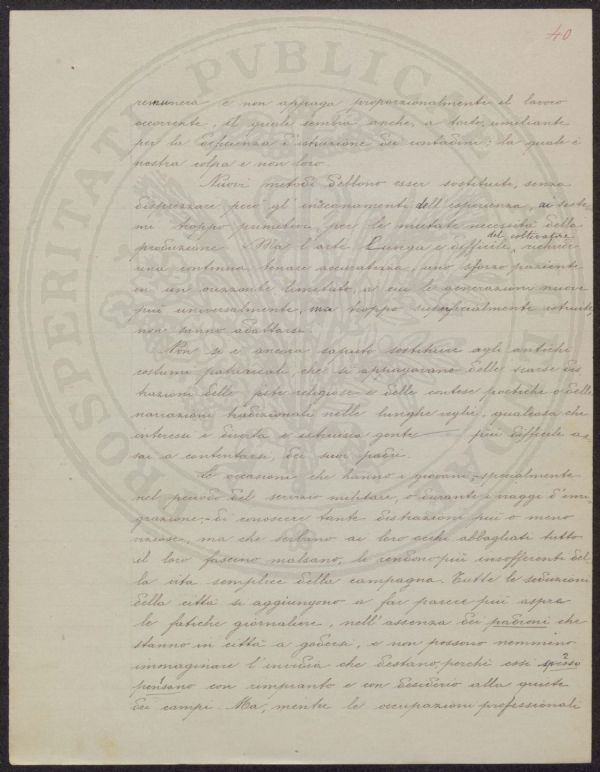 40
remunera e non appaga proporzionalmente il lavoro
occorrente, il quale sembra anche, a torto, umiliante
per la deficienza d'istruzione dei contadini; la quale è
nostra colpa e non loro.
Nuovi metodi debbono esser sostituiti, senza
disprezzare però gl'insegnamenti dell'esperienza, ai siste-
mi troppo primitivi, per le mutate necessità della
produzione. Ma l'arte lunga e difficile del coltivatore richiede
una continua, tenace accuratezza, uno sforzo paziente
in un orizzonte limitato, a cui le generazioni nuove
più universalmente, ma troppo superficialmente istruite,
non sanno adattarsi.
Non si è ancora saputo sostituire agli antichi
costumi patriarcali, che si appagavano delle scarse dis
trazioni delle feste religiose e delle contese poetiche o delle
narrazioni tradizionali nelle lunghe veglie, qualcosa che
interessi e diverta e istruisca gente più difficile as-
sai a contentarsi, dei suoi padri.
Le occasioni che hanno i giovani, specialmente
nel periodo del servizio militare, o durante i viaggi d'emi-
grazione, di conoscere tante distrazioni più o meno
viziose, ma che serbano ai loro occhi abbagliati tutto
il loro fascino malsano, li rendono più insofferenti del-
la vita semplice della campagna. Tutte le seduzioni
della città si aggiungono a far parere più aspre
le fatiche giornaliere, nell'assenza dei padroni che
stanno in città a godersi, e non possono nemmeno
immaginare l'invidia che destano, perchè essi spesso
pensano con rimpianto e con desiderio alla quiete
dei campi. Ma, mentre le occupazioni professionali
PROSPERITATI PVBLICAE